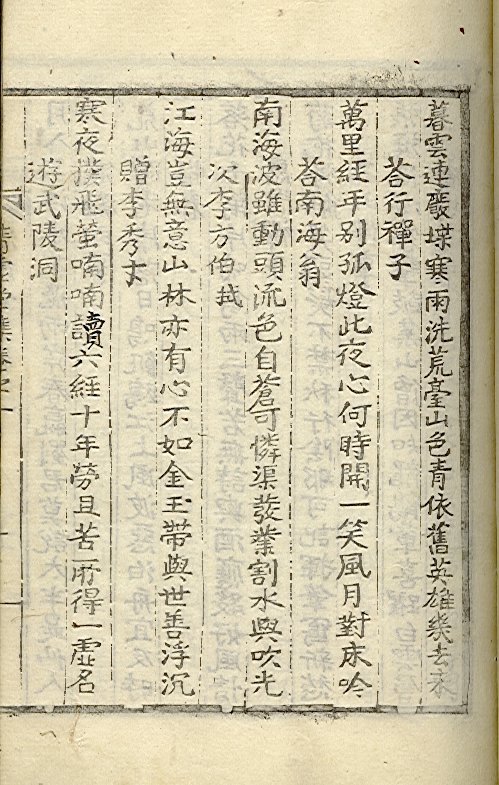 暮雲連廢堞寒雨洗荒臺山色青依舊英雄幾去來
荅行禪子
萬里經年别孤燈此夜心何時開一笑風月對床吟
荅南海翁
南海波雖動頭流色自蒼可憐渠發業割水與吹光
次李方伯拭
江海豈無意山林亦有心不如金玉帶與世善浮沉
贈李秀才
寒夜撲飛螢喃喃讀六經十年勞且苦所得一虛名
遊武陵洞